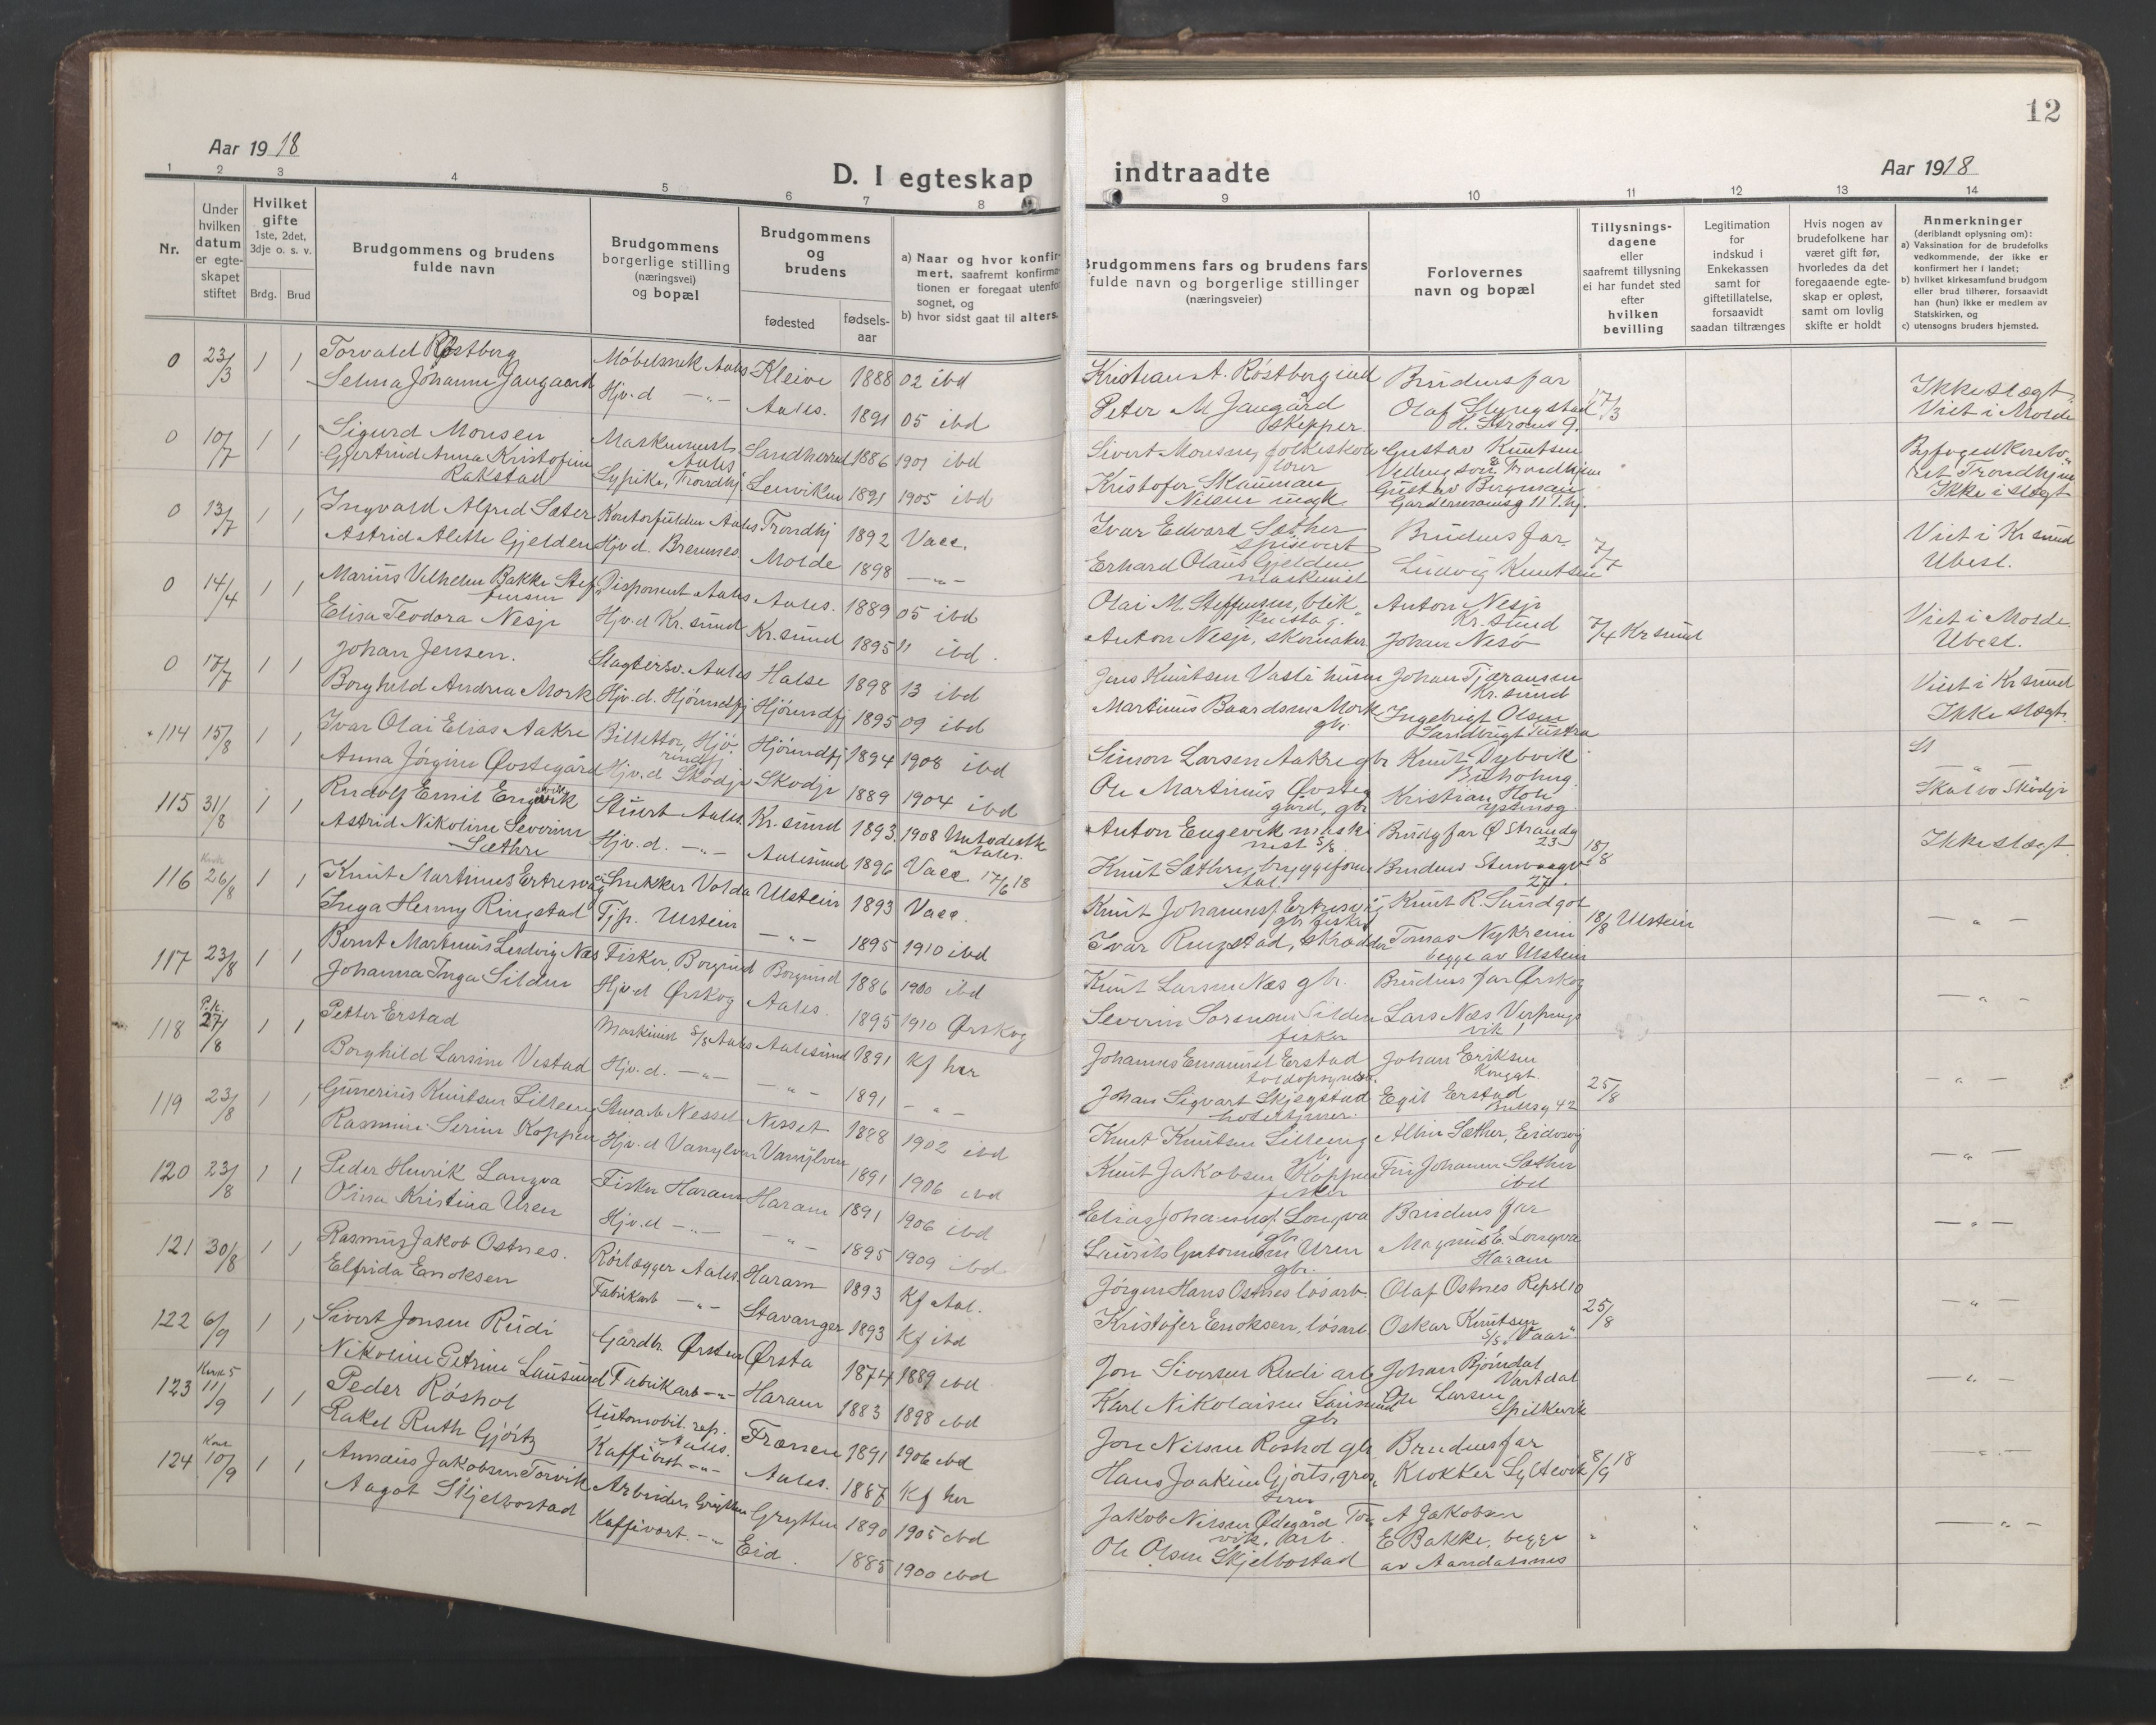 12
Aar 1918
D. I egteskap
indtraadte
Aar 1918
1 2 3 4 5 6 7 8
9 10 11 12 13 14
Nr.
Under
hvilken
datum
er egte-
skapet
stiftet
Hvilket
gifte
1ste, 2det,
3dje o. s. v.
Brdg. Brud
Brudgommens og brudens
fulde navn
Brudgommens
borgerlige stilling
(næringsvei)
og bopæl
Brudgommens
og
brudens
fødested
fødsels-
aar
a) Naar og hvor konfir-
mert, saafremt konfirma-
tionen er foregaat utenfor
sognet, og
b) hvor sidst gaat til alters.
Brudgommens fars og brudens fars
fulde navn og borgerlige stillinger
(næringsveier)
Forlovernes
navn og bopæl
Tillysnings-
dagene
eller
saafremt tillysning
ei har fundet sted
efter
hvilken
bevilling
Legitimation
for
indskud i
Enkekassen
samt for
giftetillatelse,
forsaavidt
saadan tiltrænges
Hvis nogen av
brudefolkene har
været gift før,
hvorledes da det
foregaaende egte-
skap er opløst,
samt om lovlig
skifte er holdt
Anmerkninger
(deriblandt oplysning om):
a) Vaksination for de brudefolks
vedkommende, der ikke er
konfirmert her i landet;
b) hvilket kirkesamfund brudgom
eller brud tilhører, forsaavidt
han (hun) ikke er medlem av
Statskirken, og
c) utensogns bruders hjemsted.
0 23/3 1 1 Torvald Røstberg Møbelsnek Aales Kleive 1888 02 ibd
Selma Johanne Jangaard Hjv.d -"- Aales. 1891 05 ibd
Kristian A. Røstberg Brudens far 17/3 Ikke slægt.
Peter M Jangård Olaf Slyngstad Viet i Molde
skipper.
0 10/7 1 1 Sigurd Monsen Aales Sandherred 1886 1901 ibd
Gjertrud Anna Kristofine Trondhj Lenviken 1891 1905 ibd
Rakstad
Sivert Monsen, folkeskole Gustav Knutsen Byfogedkonto
lærer Trondhjem ret Trondhjem
Kristofer Skaurnan Gustav Bergman Ikke i slægt
Nilsen
0 13/7 1 1 Ingvald Alfred Sæter Kontorfuldm Aales Trondhj 1892 Vacc.
Astrid Alette Gjelden Hjv.d. Bremnes Molde 1898 -"-
Ivar Edvard Sæther Brudens far. 7/7 Viet i Kr sund
spisevert
Erhard Olaus Gjelden Ludvig Knutsen Ubesl.
maskinist
0 14/4 1 1 Marius Vilhelm Bakke Stef Disponent Aales Aales. 1889 05 ibd
fensen
Elisa Teodora Nesje Hjv.d Kr.sund Kr.sund 1895 11 ibd.
Olai M. Steffensen, blik Anton Nesje Viet i Molde.
Kr.sund
Anton Nesje, skomaker Johan Nesø 7/4 Kr sund Ubesl.
0 17/7 1 1 Johan Jensen. Slagtersv. Aales Halse 1898 13 ibd
Borghild Andrea Mork Hjv.d. Hjörundfj Hjörundfj 1895 09 ibd
Jens Knutsen Johan Tjæransen Viet i Kr sund
Kr.sund
Martinus Baardsen Mork Ingebrigt Olsen Ikke slægt.
gbr. Tustra
114 15/8 1 1 Ivar Olai Elias Aakre Hjö- Hjörundfj 1894 1908 ibd
rundfj
Anna Jørgine Øvstegård Hjv.d Skodje Skodje 1889 1904 ibd
Simon Larsen Aakre gbr Knut Dybvik
Ole Martinus Øvsteg Kristian Skodje
gård, gbr
115 31/8 1 1 Rudolf Emil Engevik Stuert Aales. Kr.sund 1893 1908
Astrid Nikoline Severine Hjv.d. -"- Aalesund 1896 Vacc 17/6 18
Sæthre
Anton Engevik maski Brudg far Ø Strandg Ikke slægt.
nist S/S 23
Knut Sæthre, bryggeform Brudens 18/8
Aal.
116 26/8 1 1 Knut Martinus Ertesvåg Snekker Volda Ulstein 1893 Vacc.
Inga Henny Ringstad Tjp. Ulstein -"- 1895 1910 ibd
Knut Johannes Ertesvåg Knut R. Sundgot 18/8 Ulstein -"-
gbr fisker
Ivar Ringstad, skrædder Tomas Nykreim
begge av Ulstein
117 23/8 1 1 Bernt Martinus Ludvig Næs Fisker, Borgund Borgund 1886 1900 ibd
Johanna Inga Silden Hjv.d Ørskog Aales. 1895 1910 Ørskog
Knut Larsen Næs gbr. Brudens far Ørskog -"-
Severin Sørensen Silden Lars Næs
fisker vik 1
118 27/8 1 1 Petter Erstad Maskinist S/S Aales Aalesund 1891 Kf her
Borghild Larsine Vestad Hjv.d. -"- -"- 1891 -"-
Johannes Emanuel Erstad Johan Eriksen -"-
Kongsgt.
Johan Sigvart Skjegstad Egil Erstad 25/8
42
119 23/8 1 1 Gunerius Knutsen Lilleeng Nesset Nesset 1888 1902 ibd
Rasmine Serine Koppen Hjv.d Vanylven Vanylven 1891 1906 ibd
Knut Knutsen Lilleeng Albin Sæther, Eidsvåg -"-
gb.
Knut Jakobsen Koppen Johanne Sæther
fisker ibd
120 23/8 1 1 Peder Henrik Longva Fisker Haram Haram 1891 1906 ibd
Olina Kristina Uren Hjv.d -"- -"- 1895 1909 ibd
Elias Johannes Longva Brudens far -"-
gbr
Laurits Uren Magnus E. Longva
gbr. Haram
121 30/8 1 1 Rasmus Jakob Ostnes. Rørlægger Aales. Haram 1893 Kf Aal.
Elfrida Enoksen Fabrikarb -"- Stavanger 1893 Kf ibd
Jörgen Hans Ostnes løsarb. Olaf Ostnes Repsl 10 -"-
Kristofer Enoksen, løsarb Oskar Knutsen 25/8
S/S "Vaar".
122 6/9 1 1 Sivert Jonsen Rudi Gardbr. Ørsten Ørsta 1874 1889 ibd
Nikoline Petrine Lausund Fabrikarb -"- Haram 1883 1898 ibd
Jon Sivertsen Rudi arb Johan Bjørndal -"-
Vartdal
Karl Nikolaisen Lausund Ole Larsen
gbr Spilkevik
123 11/9 1 1 Peder Røshol Automobil. rep. Frænen 1891 1906 ibd
Aales.
Rakel Ruth Gjørtz -"- Aales. 1887 Kf her
Jon Nilsen Roshol gbr Brudens far -"-
Hans Joakim Gjørtz, gros Klokker Syltevik 8/9 18
serer
124 10/9 1 1 Annæus Jakobsen Torvik Arbeider, Grytten Grytten 1890 1905 ibd
Aagot Skjelbostad Kaffivært. -"- Eid. 1885 1900 ibd
Jakob Nilsen Ødegård Tor A Jakobsen -"-
vik, arb.
Ole Olsen Skjelbostad E Bakke, begge
av Aandalsnes